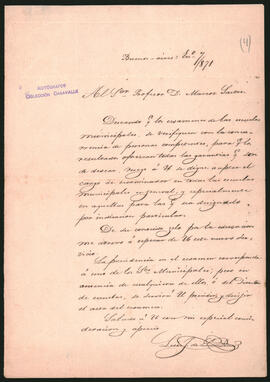 (4)
Buenos-aires: En.º 7/1871
AUTÓGRAFOS
COLECCIÓN CASAVALLE
Al Sor. Profesor D. Marcos Sastre
Deseando q. los exámenes de las escuelas
municipales, se verifiquen con la concu-
rrencia de personas competentes, para q. los
resultados ofrezcan todas las garantías q. son
de desear, ruego á U se digne aceptar el
cargo de examinador en todas las escuelas
municipales en general, y especialmente
en aquellas para las q. sea designado,
por indicación particular.
De su conocido celo por la educación
me atrevo á esperar de U este nuevo ser-
vicio.
La presidencia en el examen corresponde
á uno de los Sres. Municipales; pero en
ausencia de cualquiera de ellos, ó del Director
de escuelas, se servirá U presidir y dirijir
el acto del examen.
Saludo á U con mi especial consi-
deración y aprecio